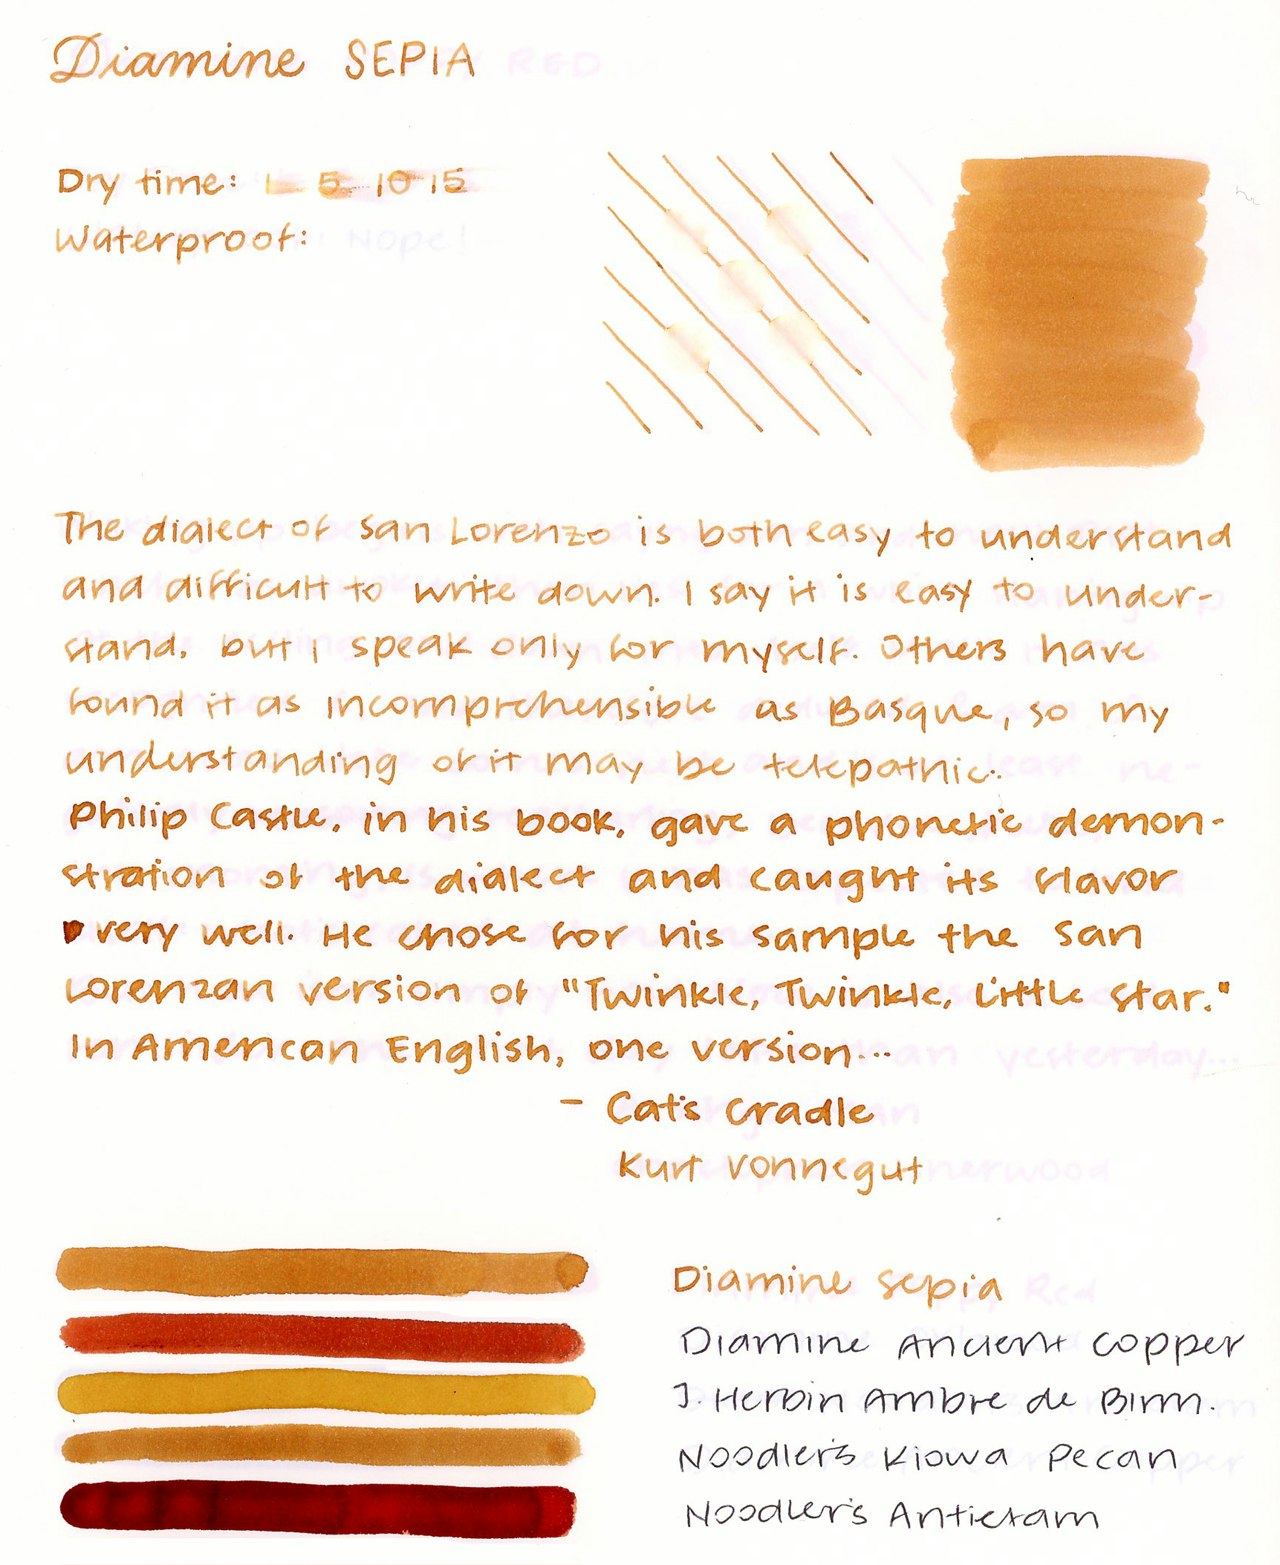 Diamine SEPIA
Dry time: 1 5 10 15
Waterproof: Nope!
The dialect of San Lorenzo is both easy to understand
and difficult to write down. I say it is easy to under-
stand, but I speak only for myself. Others have
found it as incomprehensible as Basque, so my
understanding of it may be telepathic.
Philip Castle, in his book, gave a phonetic demon-
stration of the dialect and caught its flavor
very well. He chose for his sample the San
Lorenzan version of "Twinkle, Twinkle, Little Star."
In American English, one version...
- Cat's Cradle
Kurt Vonnegut
Diamine Sepia
Diamine Ancient Copper
J. Herbin Ambre de Birm.
Noodler's Kiowa Pecan
Noodler's Antietam